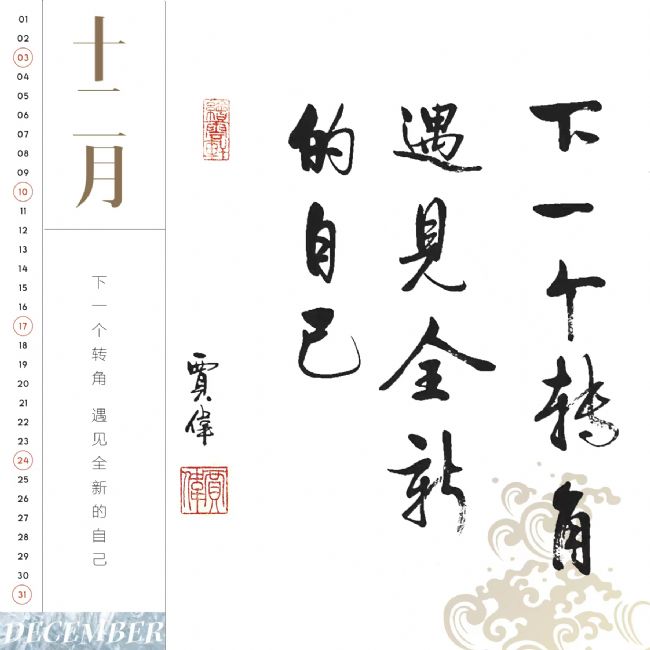 01
02
03
04
05
06
07
08
09
10
11
12
13
14
15
16
17
18
19
20
21
22
23
24
25
26
27
28
29
30
31
十二月
下一个转角 遇见全新的自己
DECEMBER
下一个转角
遇見全新
的自己
賈偉
賈偉